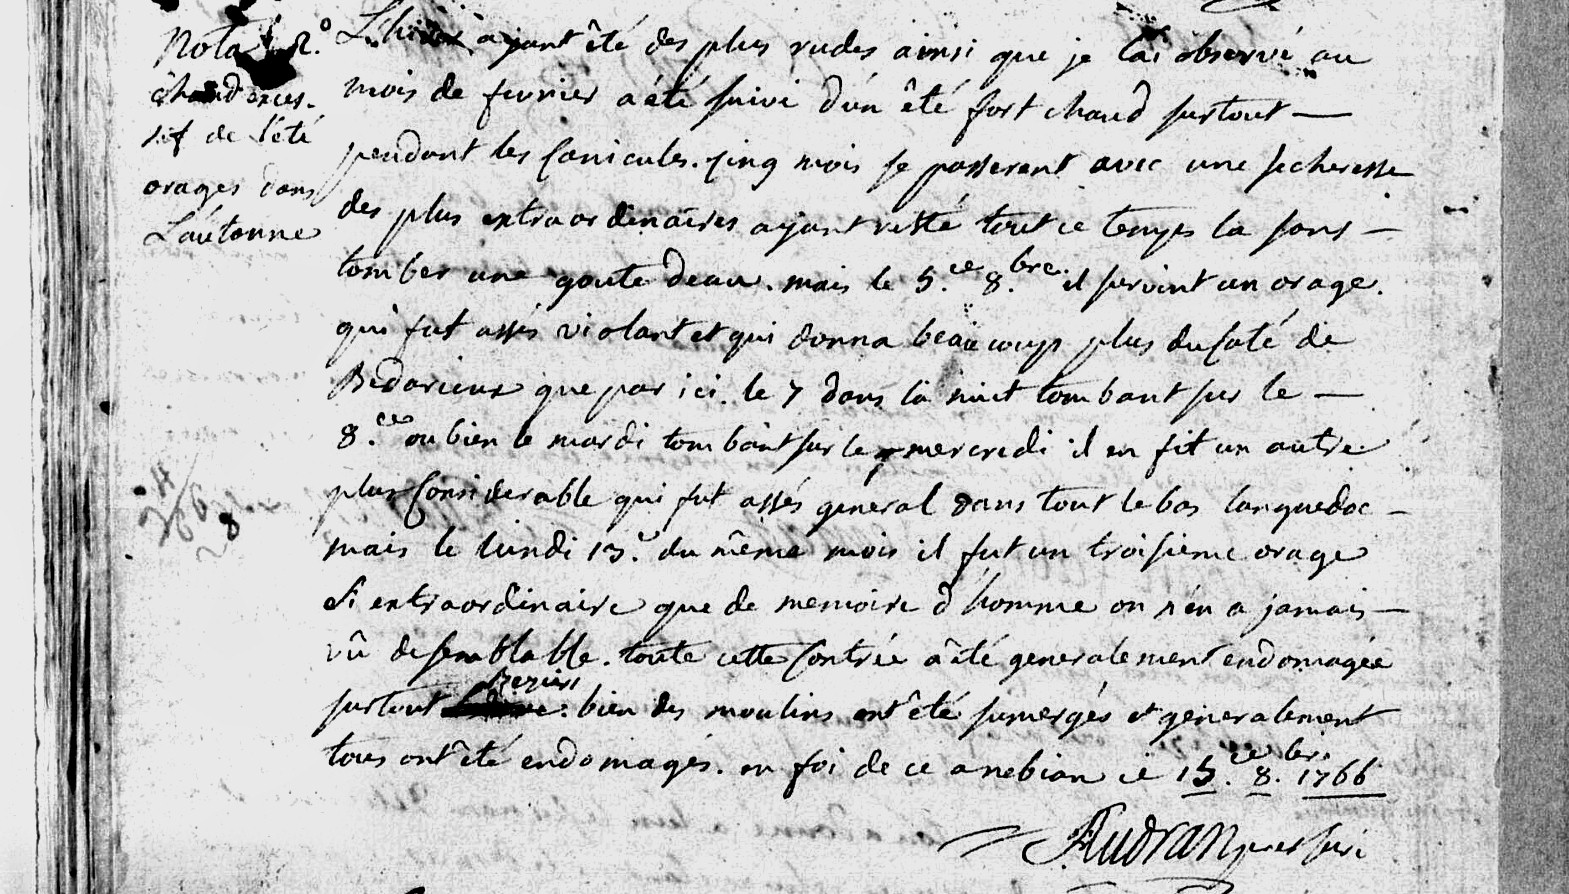 Nota 2.°
chaud exces-
sif de l'été
orages dans
L'autonne
L'hiver ayant êté des plus rudes ainsi que je l'ai observé au
mois de fevrier a été suivi d'un êté fort chaud surtout —
pendant les canicules. cinq mois se passerent avec une secheresse
des plus extraordinaires ayant resté tout ce temps la sans —
tomber une goute deau. mais le 5.ce 8.bre il survint un orage.
qui fut assés violant et qui donna beaucoup plus du coté de
Bedarieux que par ici. le 7 dans la nuit tombant sur le —
8.ce ou bien le mardi tombant sur le mercredi il en fit un autre
plus considerable qui fut assés général dans tout le bas languedoc —
mais le lundi 13. du même mois il fut un troisieme orage
si extraordinaire que de memoire d'homme on n'en a jamais —
vû de semblable. toute cette contrée a êté generalement endomagée
surtout Beziers. bien des moulins ont êté sumergés et generalement
tous ont êté endomagés. en foi de ce a nebian ce 15.ce 8.bre 1766
Audran